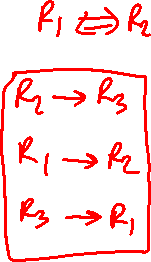 R₁ ⟺ R₂
R₂ → R₃
R₁ → R₂
R₃ → R₁